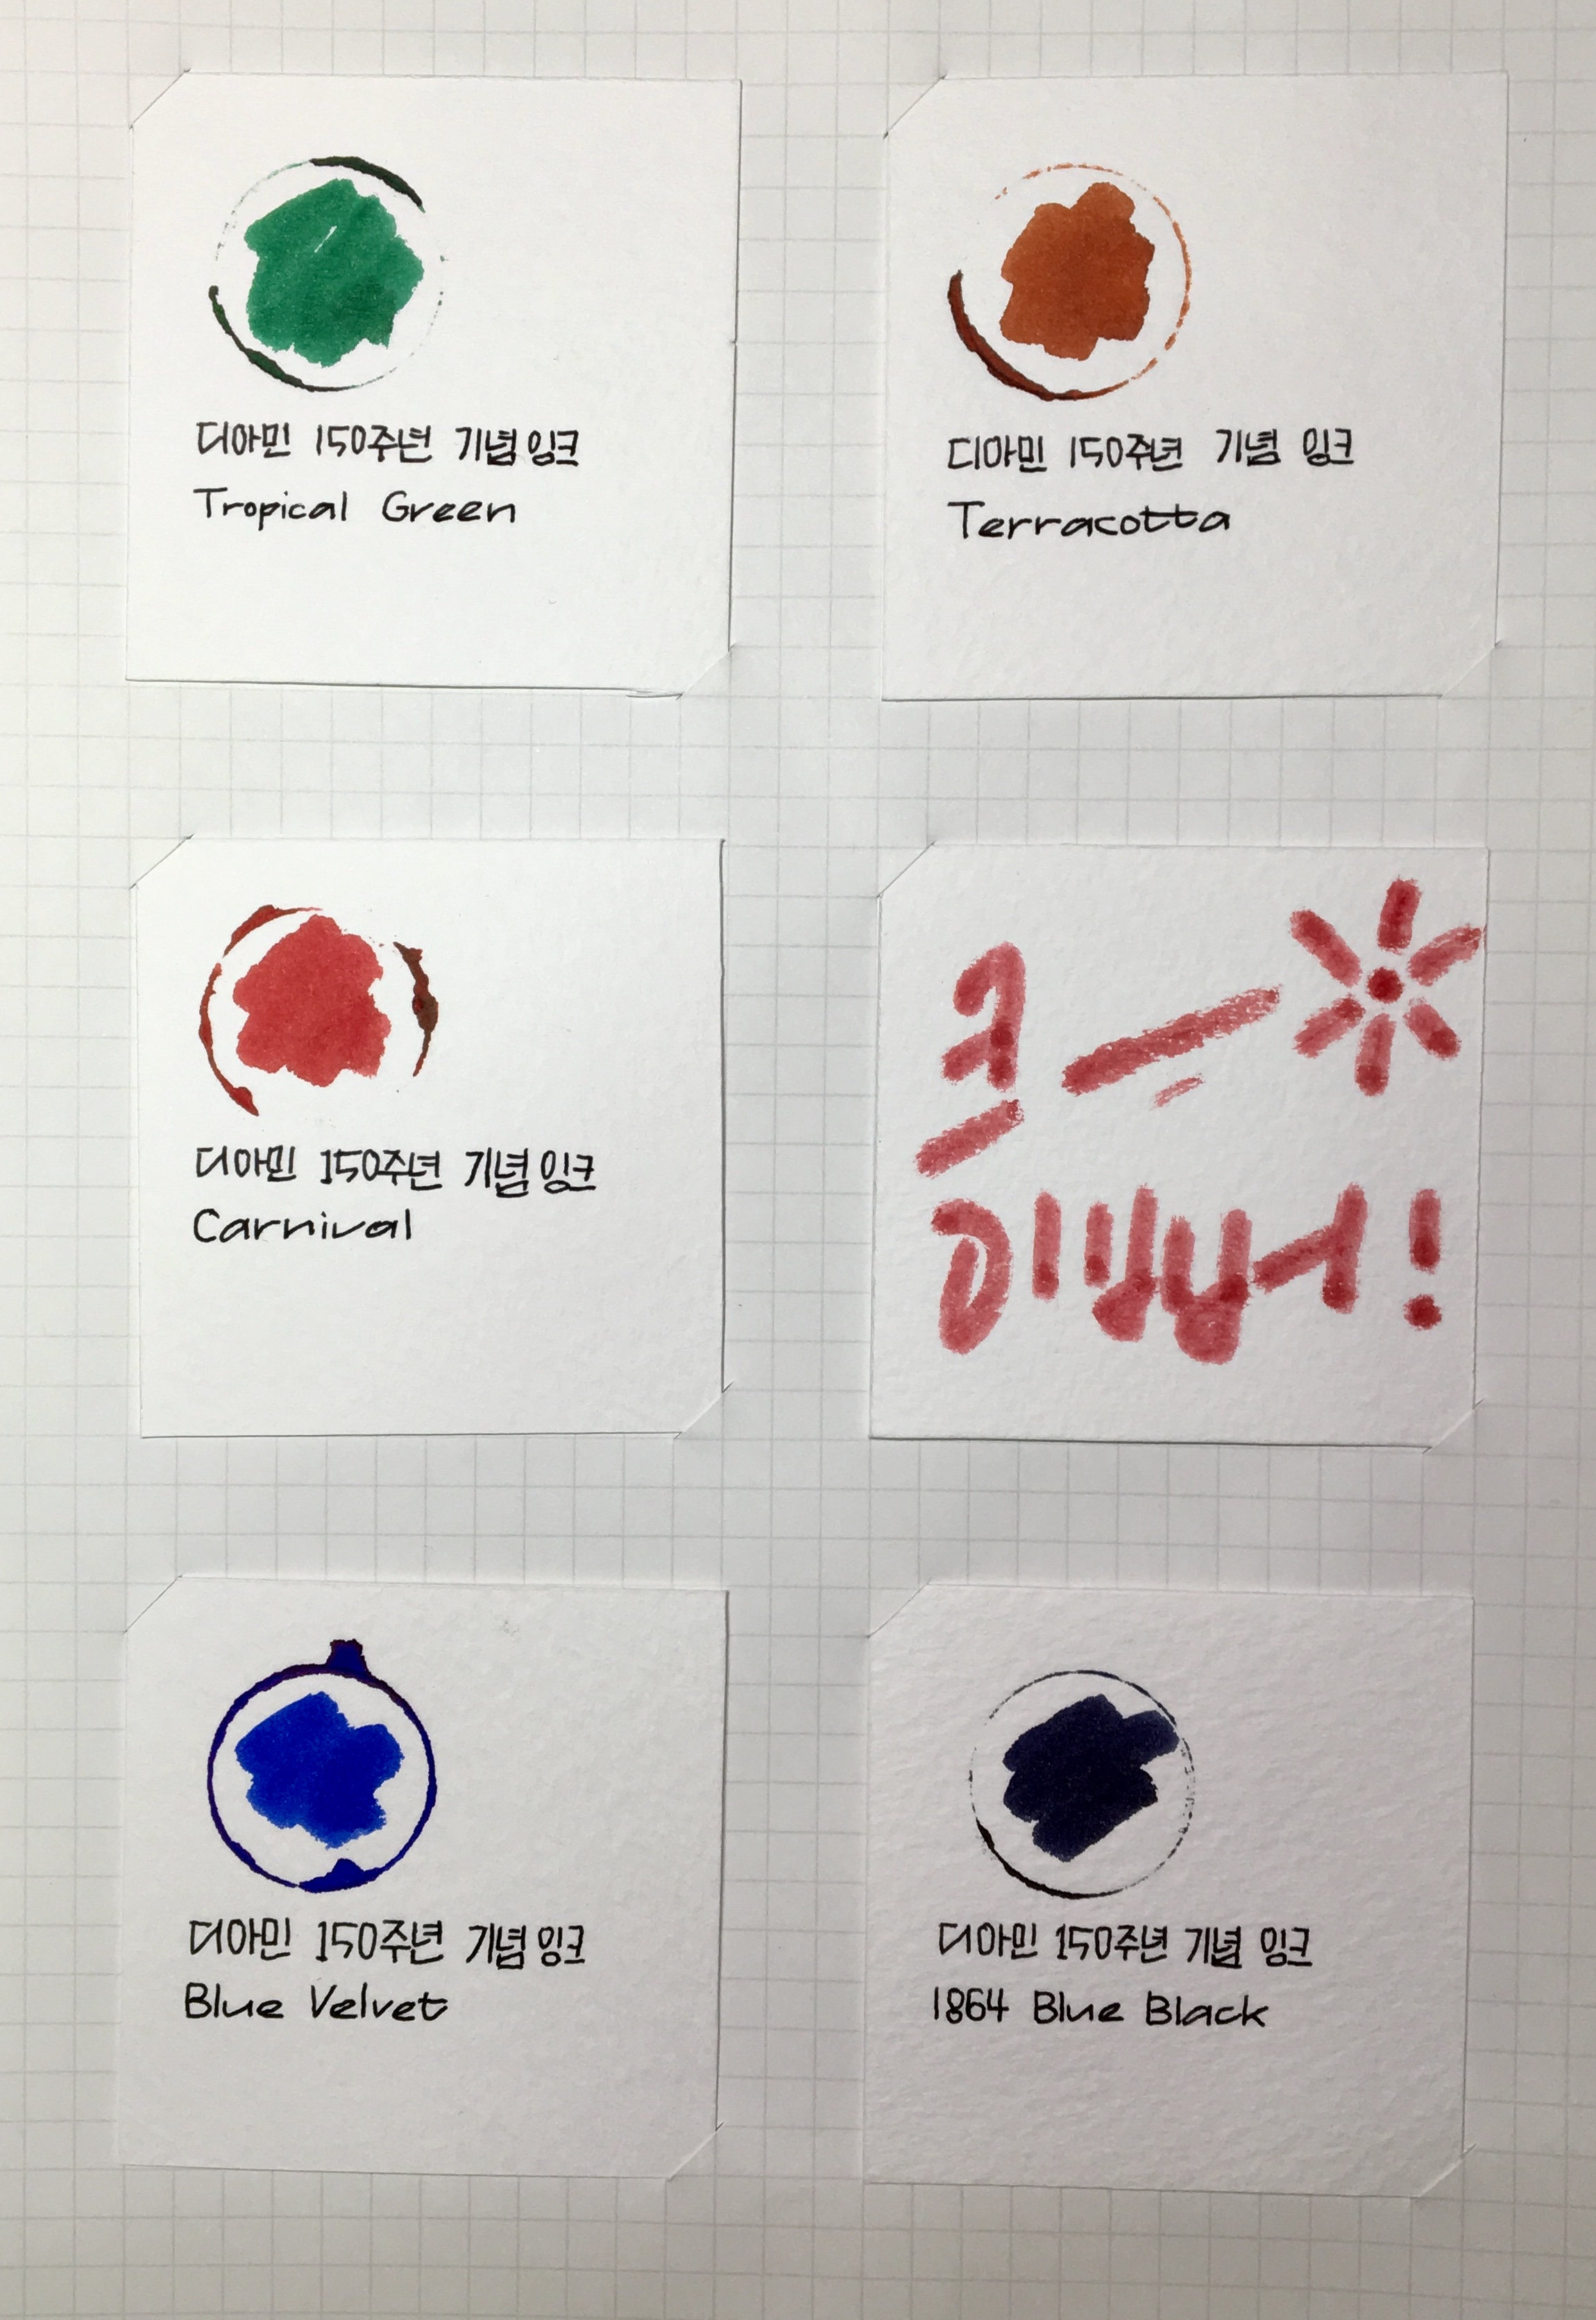 디아민 150주년 기념잉크
Tropical Green
디아민 150주년 기념 잉크
Terracotta
디아민 150주년 기념잉크
Carnival
이뻐!
디아민 150주년 기념잉크
Blue Velvet
디아민 150주년 기념 잉크
1864 Blue Black